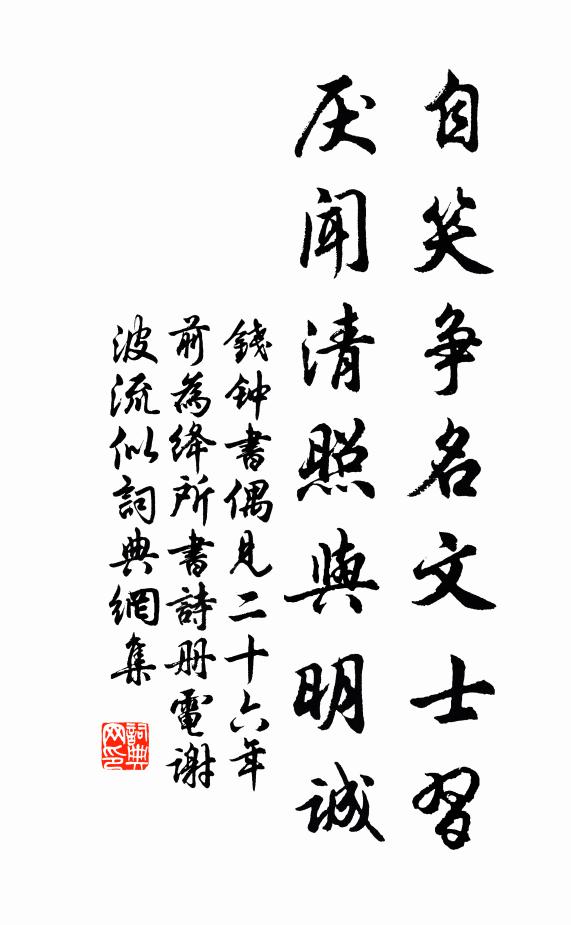 自笑争名文士習
厌聞清照與明誠
錢钟書偶見二十六年
前為绛所書詩册電謝
波流似詞典網集
詞典网印